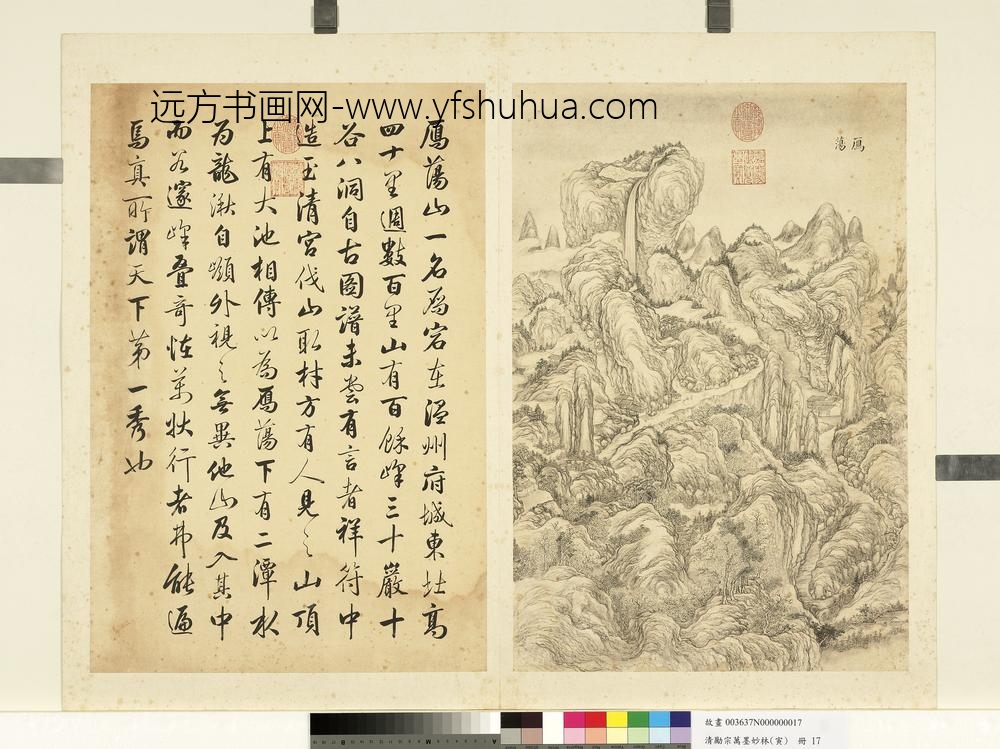 远方书画网-www.yfshuhua.com
雁蕩
鴈蕩山一名為宕在溫州府城東北高
四十里週數百里山有百餘峰三十巖十
谷八洞自古圖譜未嘗有言者祥符中
造玉清宮伐山取材方有人見之山頂
上有大池相傳以為鴈蕩下有二潭水
為龍湫自嶺外視之無異他山及入其中
而谷邃峰疊奇怪萬狀行者弗能遍
焉真所謂天下第一秀也
故畫 003637N000000017
清勵宗萬墨妙林(寅) 冊 17